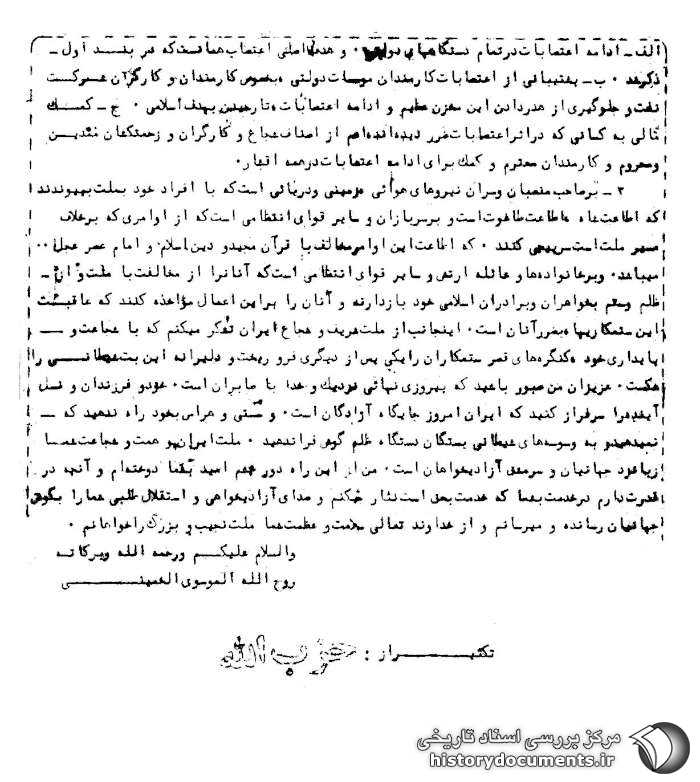 الف ـ ادامه اعتصابات در تمام دستگاههای دولتی ۰ و هدف اصلی اعتصاب همانست که در بند اول ـ
ذکر شد ۰ ب ـ پشتیبانی از اعتصابات کارمندان موسسات دولتی بخصوص کارمندان و کارگران شرکت
نفت و جلوگیری از هدر دادن این مخزن عظیم و ادامه اعتصابات تا رسیدن بهدف اسلامی ۰ ج ـ کمک
مالی به کسانی که در اثر اعتصابات ضرر دیده اند اعم از اصناف شجاع و کارگران و زحمتکشان متدین
و محروم و کارمندان محترم و کمک برای ادامه اعتصابات در همه اقشار۰
۲ ـ بر صاحب منصبان و سران نیروهای هوائی و زمینی و دریائی است که با افراد خود بملت بپیوندند
که اطاعت شاه اطاعت طاغوت است و بر سربازان و سایر قوای انتظامی است که از اوامری که برخلاف
مسیر ملت است سرپیچی کنند ۰ که اطاعت این اوامر مخالف با قرآن مجید و دین اسلام و امام عصر عجل ۰۰
میباشد۰ و بر خانواده ها و عائله ارتش و سایر قوای انتظامی است که آنانرا از مخالفت با ملت و از ـ
ظلم و ستم بخواهران و برادران اسلامی خود بازدارند و آنان را بر این اعمال مؤاخذه کنند که عاقبت
این ستمکاریها بضرر آنان است۰ اینجانب از ملت شریف و شجاع ایران تشکر میکنم که با شجاعت و ـ
پایداری خود کنگره های قصر ستمکاران را یکی پس از دیگری فرو ریخت و دلیرانه این بت شیطانی را
شکست۰ عزیزان من صبور باشید که پیروزی نهائی نزدیک و خدا با صابران است۰ خود و فرزندان و نسل
آینده را سرفراز کنید که ایران امروز جایگاه آزادگان است۰ و سستی و هراس بخود راه ندهید که ـ
نمیدهید و به وسوسه های شیطانی بستگان دستگاه ظلم گوش فرا ندهید ۰ ملت ایران همت و شجاعت شما
زبانزد جهانیان و سرمشق آزادیخواهان است۰ من از این راه دور چشم امید بشما دوخته ام و آنچه در
قدرت دارم در خدمت بشما که خدمت بحق است نثار میکنم و صدای آزادیخواهی و استقلال طلبی شما را بگوش
جهانیان رسانده و میرسانم و از خداوند تعالی سلامت و عظمت شما ملت نجیب و بزرگ را خواهانم ۰
والسلام علیکم ورحمه الله وبرکاته
روح الله الموسوی الخمینی
تکثیر از : حزب الله
مرکز بررسی اسناد تاریخی
historydocuments.ir